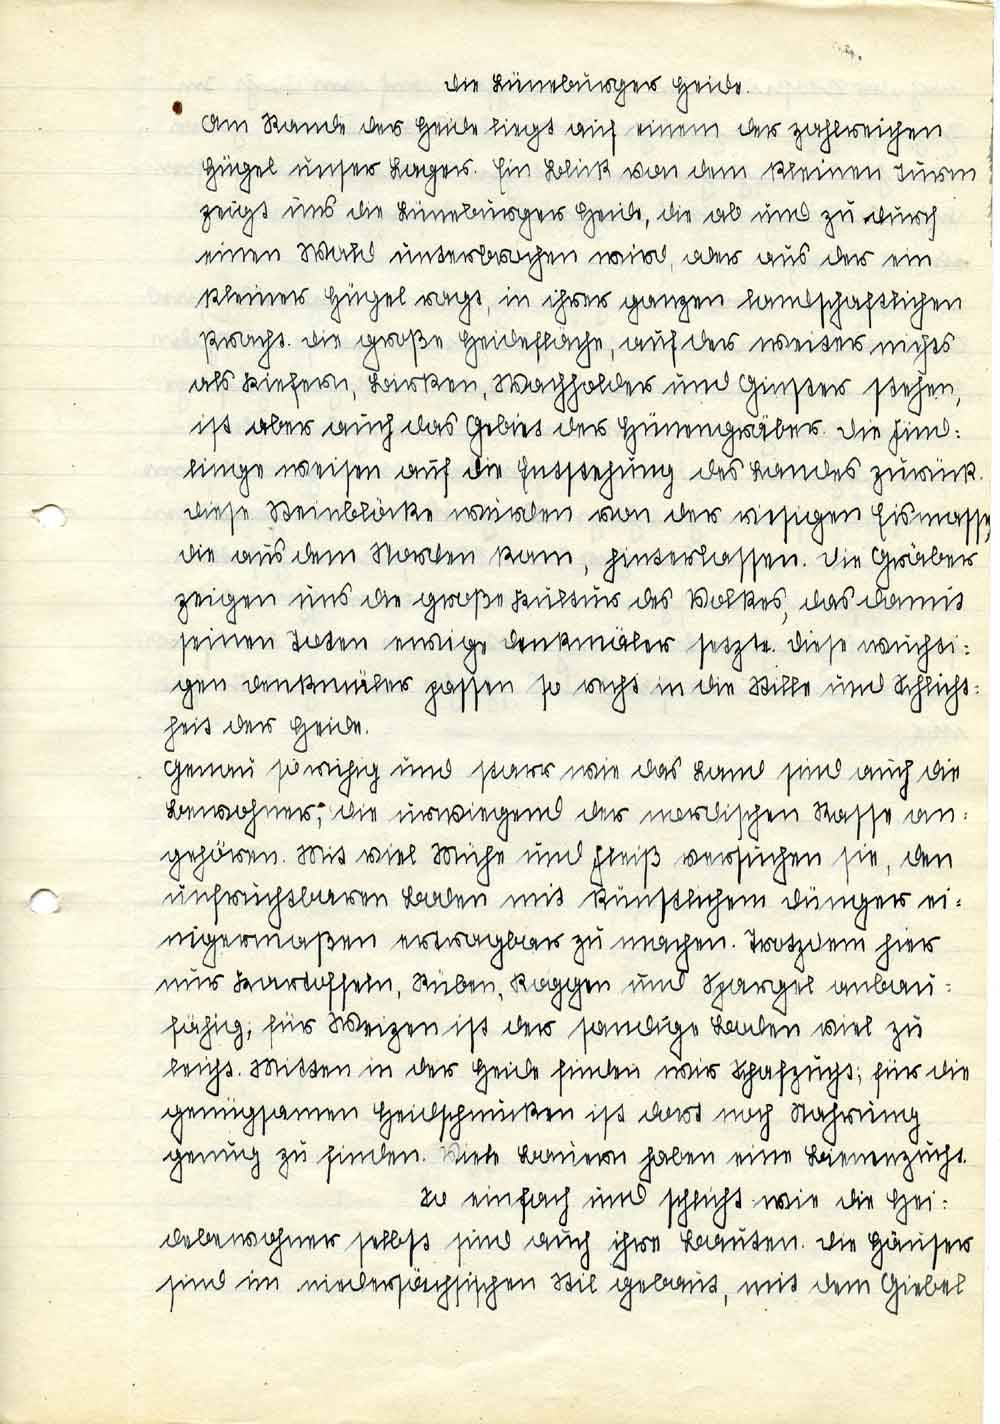 Die Lüneburger Heide.
Am Rande der Heide liegt auf einem der zahlreichen
Hügel unser Lager. Ein Blick von dem kleinen Turm
zeigt uns die Lüneburger Heide, die ab und zu durch
einen Wald unterbrochen wird, oder aus der ein
kleiner Hügel ragt, in ihrer ganzen landschaftlichen
Pracht. Die große Heidefläche, auf der weiter nichts
als Kiefern, Birken, Wachholder und Ginster stehen,
ist aber auch das Gebiet der Hünengräber. Die Find:
linge weisen auf die Entstehung des Landes zurück.
Diese Steinblöcke wurden von der riesigen Eismasse,
die aus dem Norden kam, hinterlassen. Die Gräber
zeigen uns die große Kultur des Volkes, das damit
seinen Toten ewige Denkmäler setzte. Diese wuchti:
gen Denkmäler passen so recht in die Stille und Schlicht:
heit der Heide.
Genau so ruhig und starr wie das Land sind auch die
Bewohner, die urwiegend der nordischen Rasse an:
gehören. Mit viel Mühe und Fleiß versuchen sie, den
unfruchtbaren Boden mit künstlichem Dünger ei:
nigermaßen ertragbar zu machen. Trotzdem hier
nur Kartoffeln, Rüben, Roggen und Spargel anbau:
fähig; für Weizen ist der sandige Boden viel zu
leicht. Mitten in der Heide finden wir Schafzucht; für die
genügsamen Heidschnucken ist dort noch Nahrung
genug zu finden. Viele Bauern haben eine Bienenzucht.
So einfach und schlicht wie die Hei:
debewohner selbst sind auch ihre Bauten. Die Häuser
sind im niedersächsischen Stil gebaut, mit dem Giebel